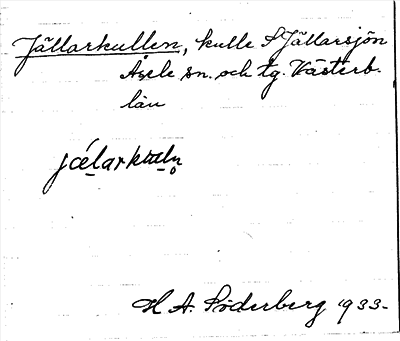 Jällarkullen, kulle S Jällarsjön
Åsele sn. och tg. Västerb.
län
jǽlarkuln̥
H. A. Söderberg 1933-